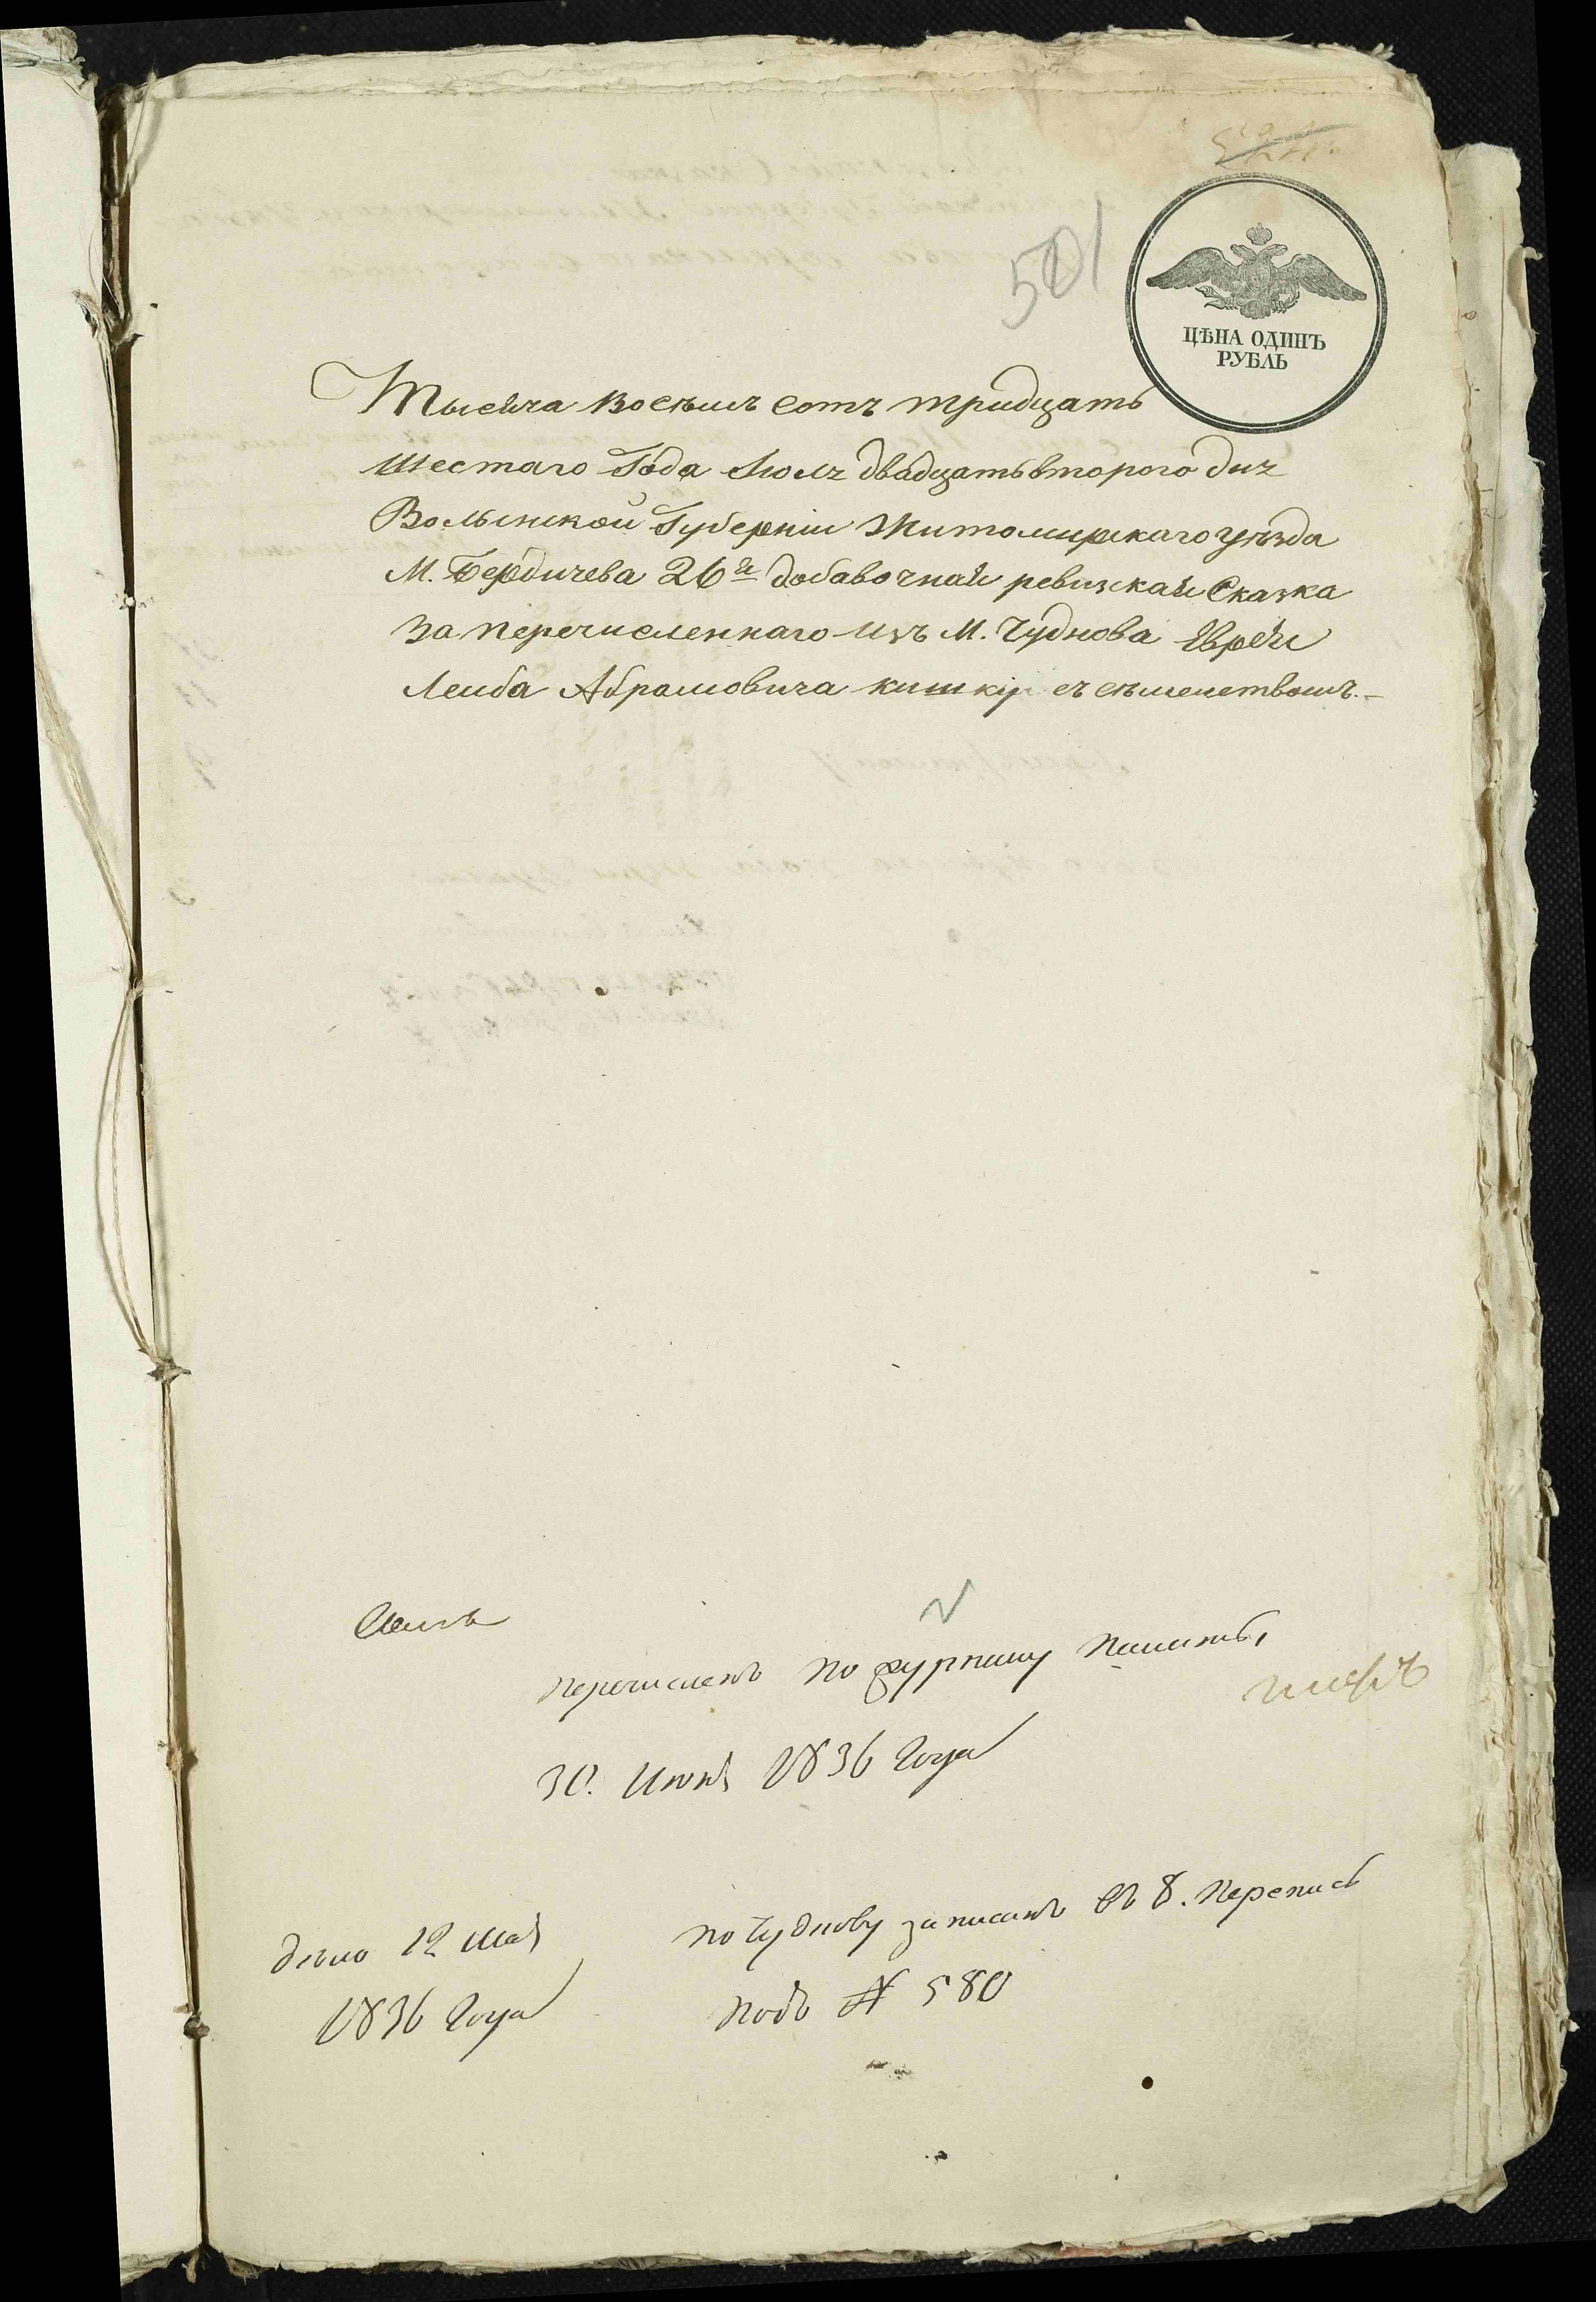 501
ЦѢНА ОДИНЪ
РУБЛЬ
Тысяча Восѣмъ Сотъ тридцать
Шестаго Года Июля двадцать второго дня
Волынской Губерніи Житомирскаго уѣзда
М. Бердичева 26я добавочная ревизкая Сказка
За перечисленнаго Изъ М. Чуднова Еврея
Лейба Абрамовича кишкір съ сѣмействомъ.
Перечисленъ по журналу Палаты,
30. Июня 1836 Года
дѣло 12 мая
1836 Года
по Чуднову записанъ въ 8. Перепись
подъ № 580